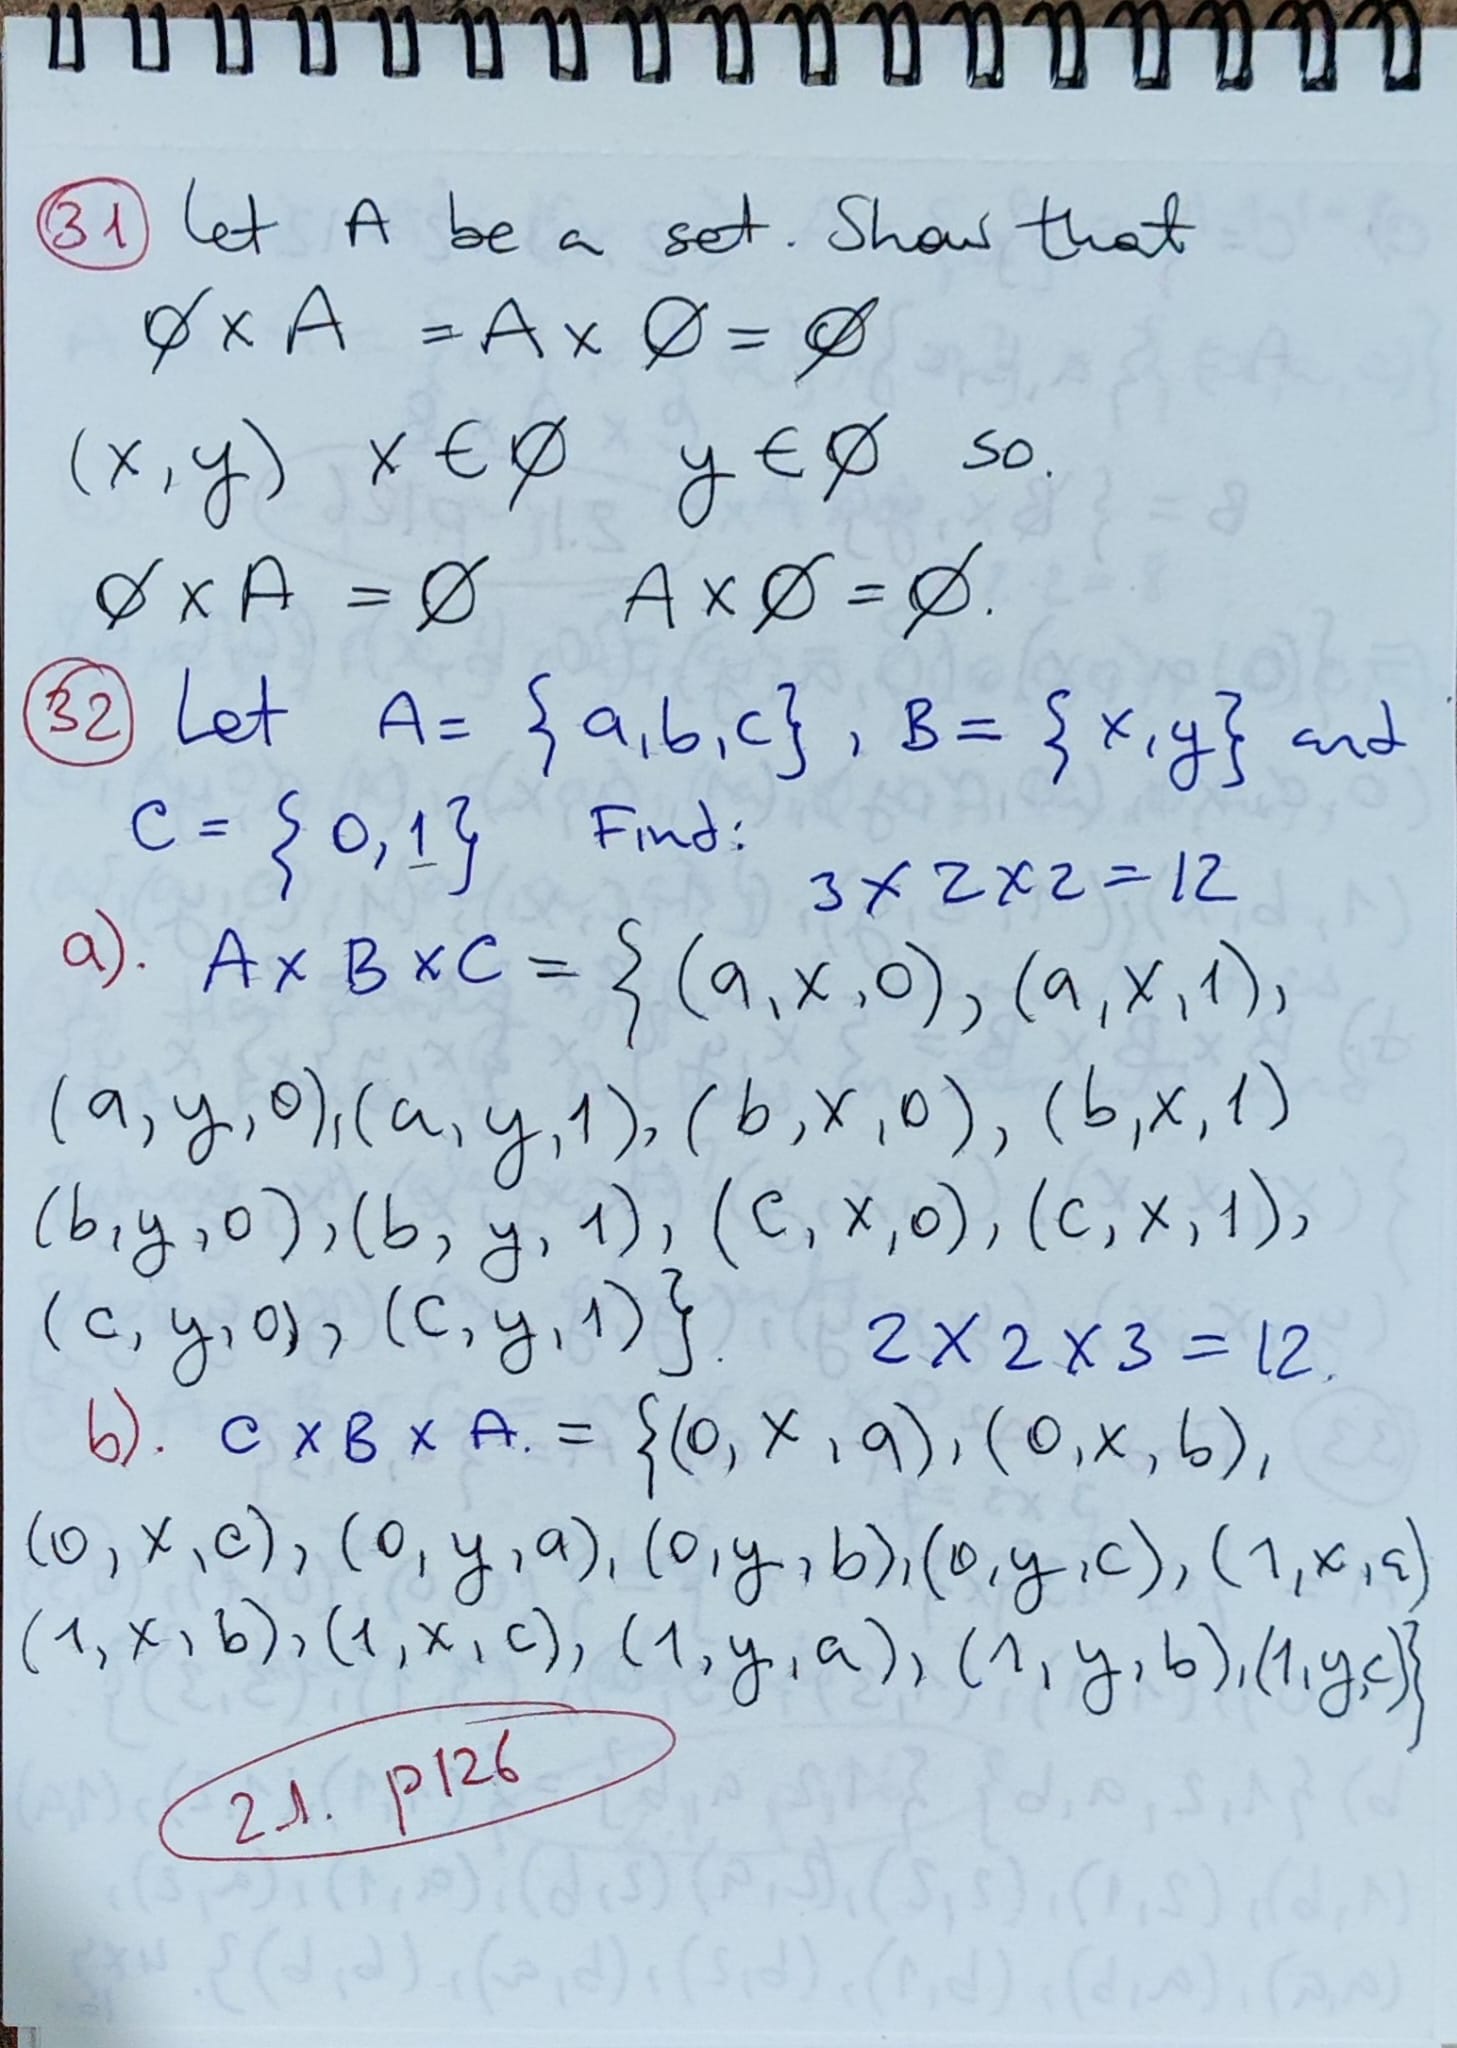 31 Let A be a set. Show that
∅ x A = A x ∅ = ∅
(x, y) x ∈ ∅ y ∈ ∅ so.
∅ x A = ∅ A x ∅ = ∅.
32 Let A = {a, b, c}, B = {x, y} and
C = {0, 1} Find:
3 x 2 x 2 = 12
a). A x B x C = {(a, x, 0), (a, x, 1),
(a, y, 0), (a, y, 1), (b, x, 0), (b, x, 1)
(b, y, 0), (b, y, 1), (c, x, 0), (c, x, 1),
(c, y, 0), (c, y, 1)}.
2 x 2 x 3 = 12.
b). C x B x A. = {(0, x, a), (0, x, b),
(0, x, c), (0, y, a), (0, y, b), (0, y, c), (1, x, a)
(1, x, b), (1, x, c), (1, y, a), (1, y, b), (1, y, c)}
2.1. p126